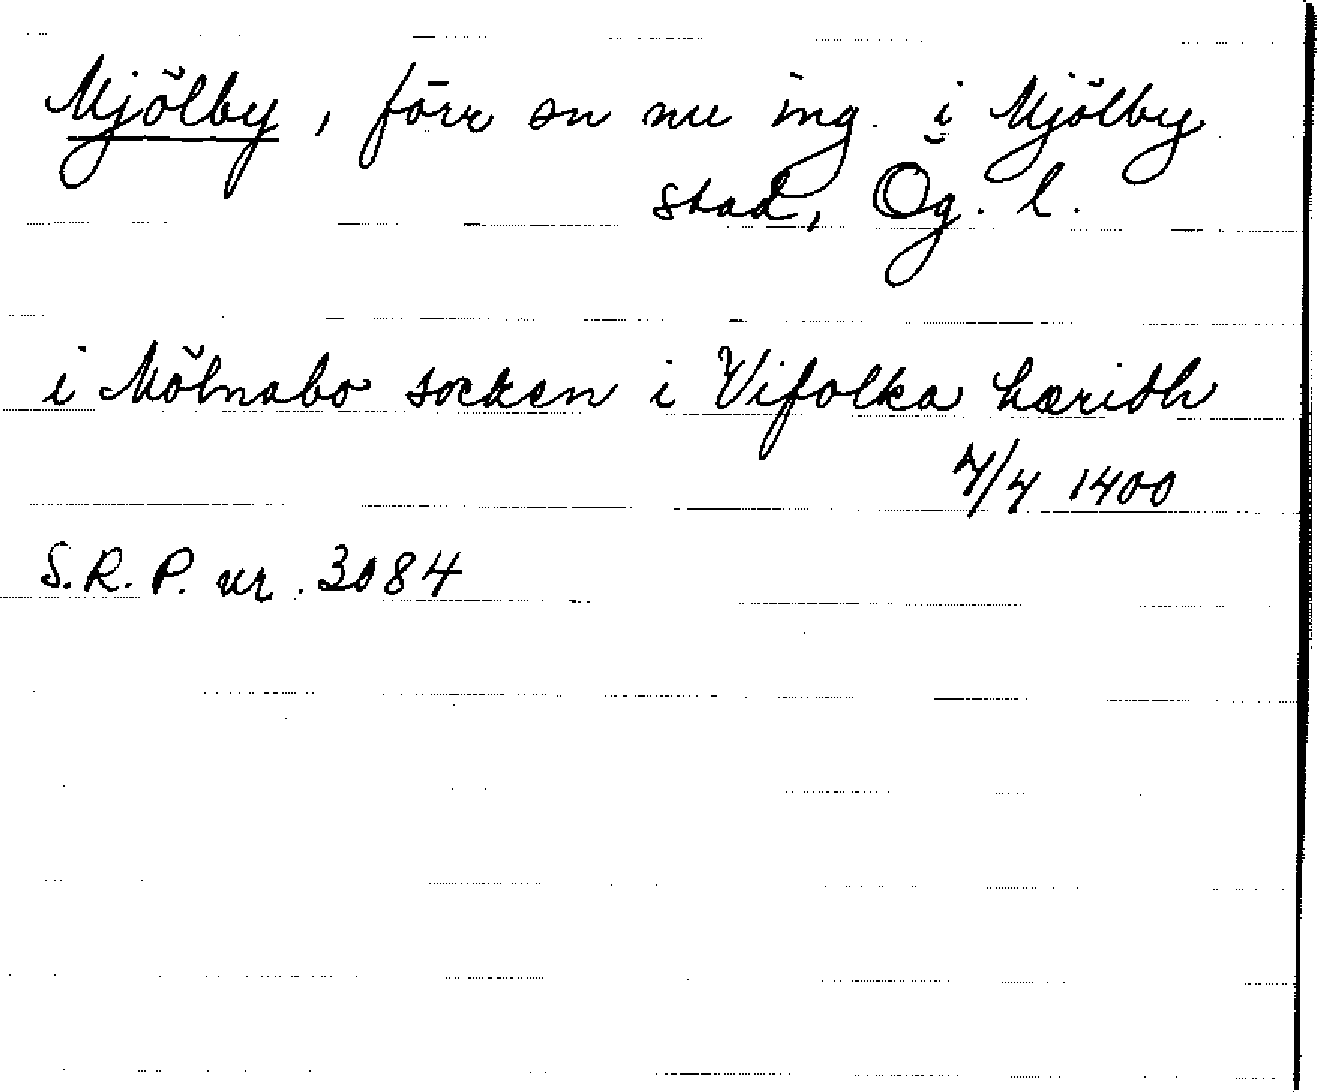 Mjölby, förr sn nu ing. i Mjölby
stad, Ög. l.
i Mölnabo socken i Vifolka hæridh
7/4 1400
S.R.P. nr. 3084